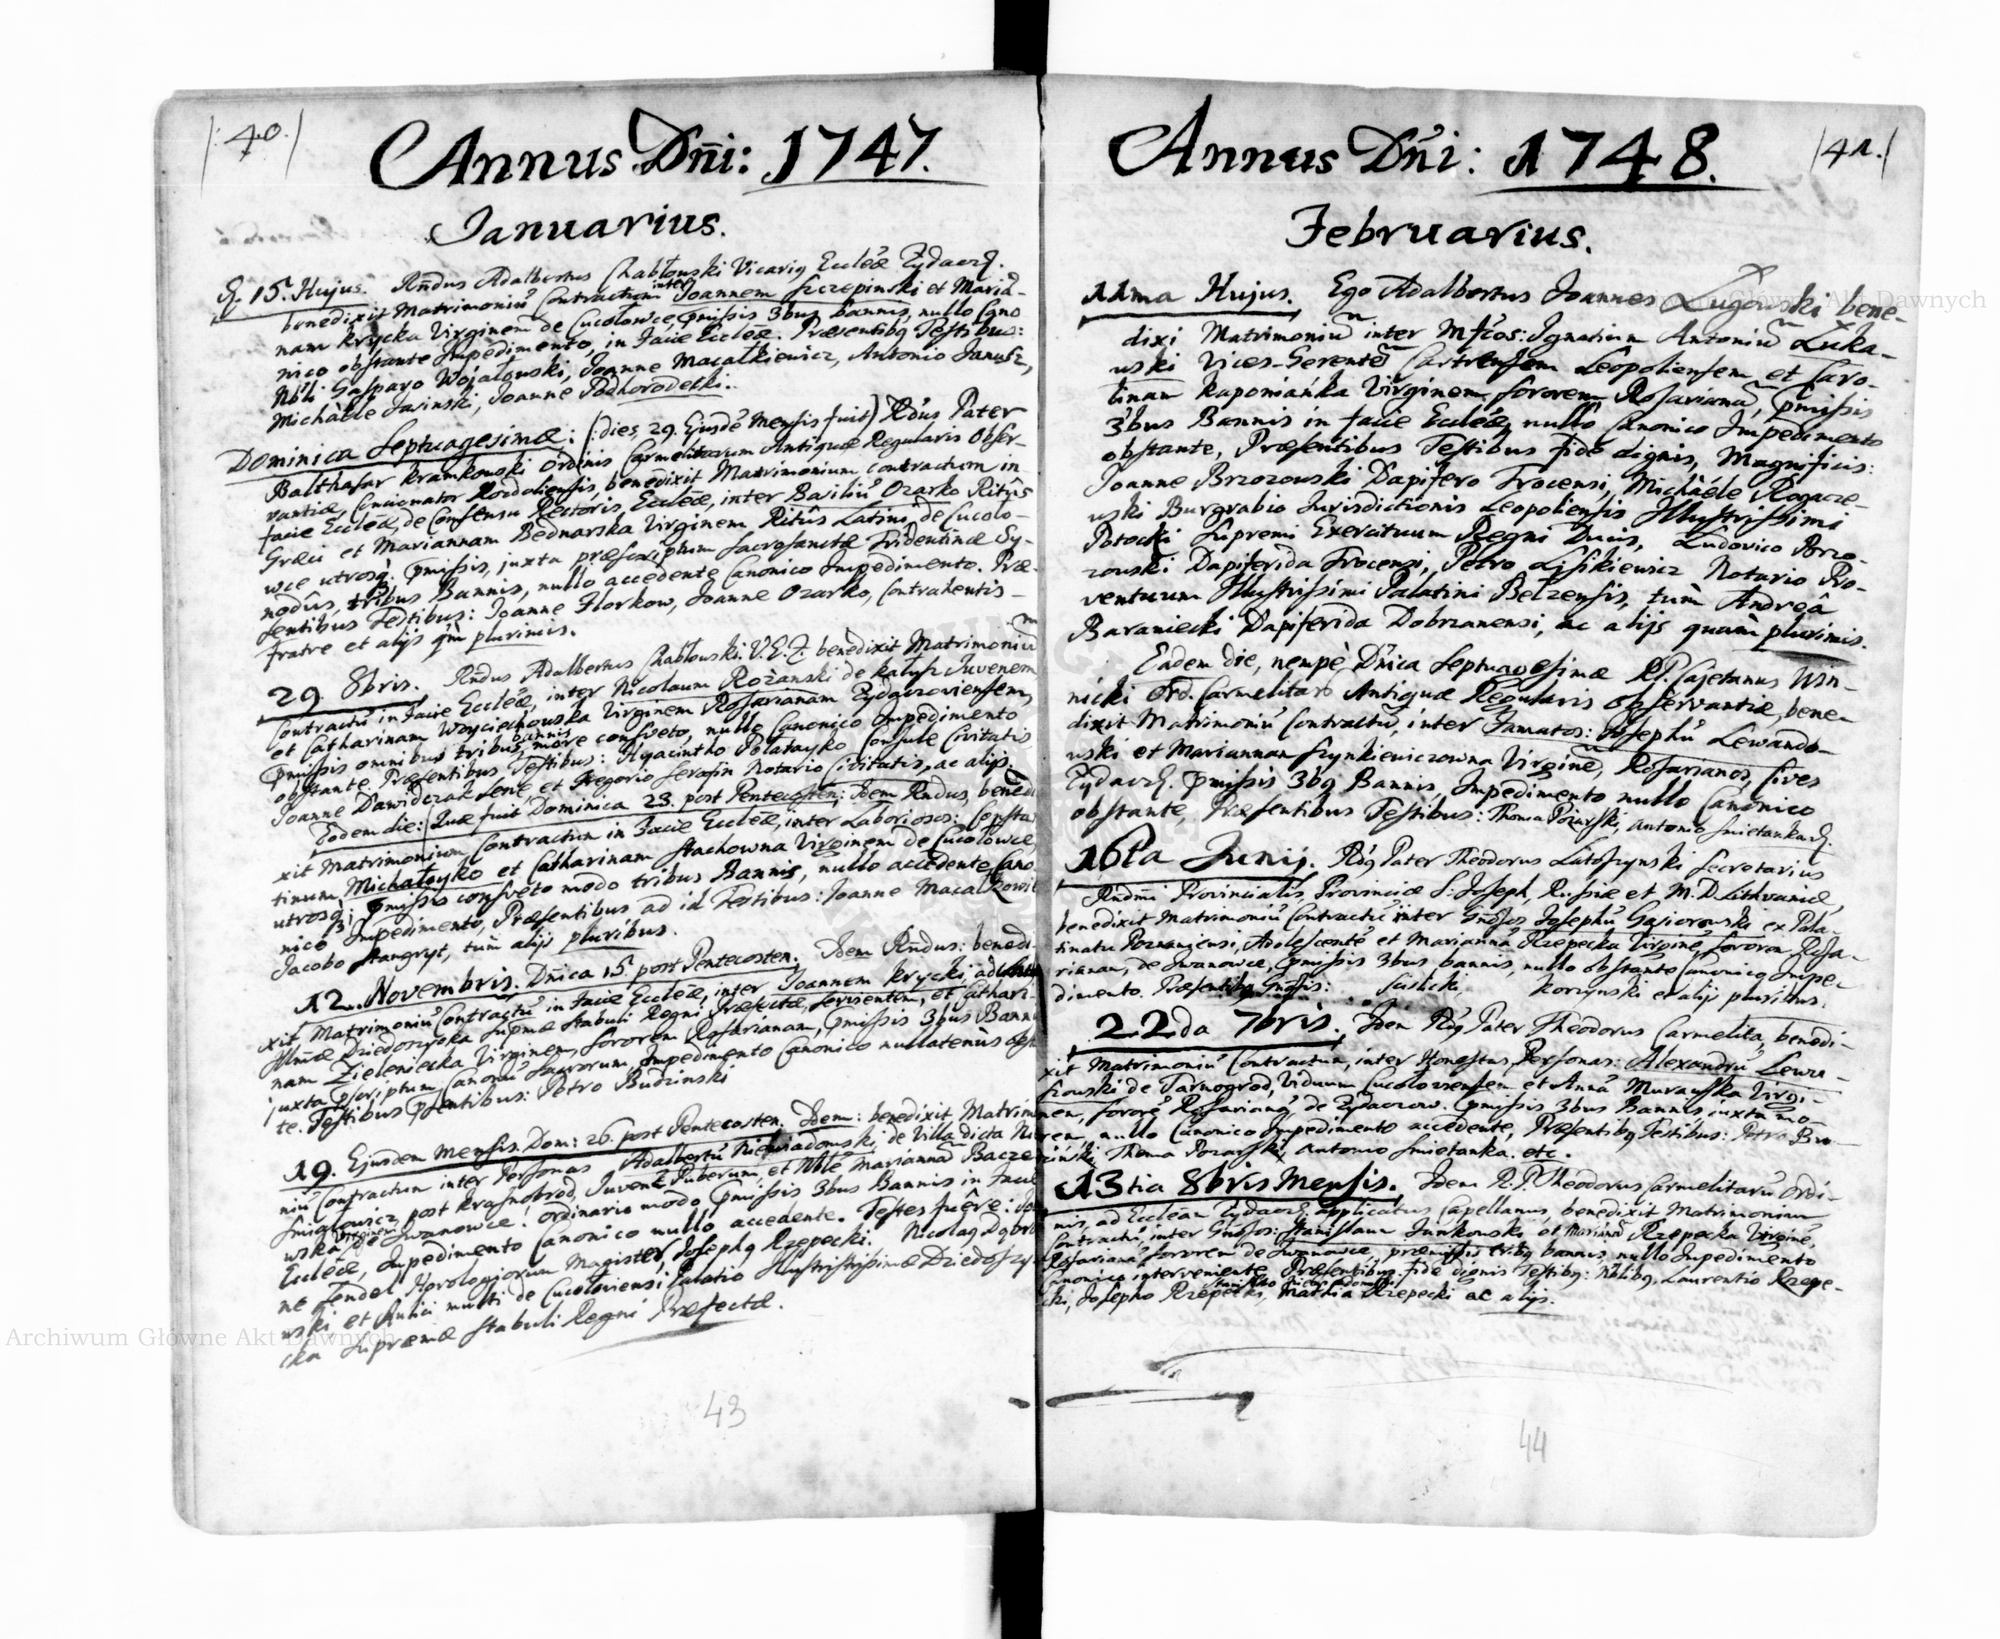 /:40./
Annus Dñi: 1747.
Januarius.
15. Hujus. Rñdus Adalbertus Chabłowski Vicarig Eccleæ Zydacz.
benedixit Matrimoniu Contractum inter Joannem Szczepinski et Maria-
nam krycka Virginem de Cucolowce pmissis 3bus bannis, nullo Cano-
nico obstante Impedimento, in Facie Eccleæ. Præsentibg Testibus:
Nbli Gasparo Wojalowski, Joanne Macałkiewicz, Antonio Janusz,
Michaële Jasinski, Joanne Podhorodecki.
Dominica Septuagesimæ: (:dies 29. Ejusdē Mensis fuit) Rdus Pater
Balthasar kramkowski Ordinis Carmelitarum Antiquæ Regularis Obser-
vantiæ, Concionator benedixit Matrimonium contractum in
facie Eccleæ, de Consensu Rectoris, Eccleæ, inter Basiliū Ozarko Ritûs
Græci et Mariannam Bednarska Virginem Ritûs Latini, de Cucolo-
wce utrosq; pmissis, juxta præscriptum Sacrosanctæ Tridentinæ Sy-
nodûs, tribus Bannis, nullo accedente Canonico Impedimento. Præ-
sentibus Testibus: Joanne Florkow, Joanne Ozarko, Contrahentis
fratre et alijs qm plurimis.
29. 8bris. Rndus Adalbertus Chabłowski. V.E.Z. benedixit Matrimoniu
Contractū in Facie Eccleæ, inter Nicolaum Rożanski de kałusz Iuvenem
et Catharinam Woyciechowska Virginem Rosarianam Zydaczoviensem,
pmissis omnibus tribus bannis more consveto, nullo Canonico Impedimento
obstante. Præsentibus Testibus: Hyacintho Połatayko Consule Civitatis
Joanne Dawidczak Sene et Gregorio Serafin Notario Civitatis, ac alijs.
Eodem die: Quæ fuit Dominica 23. post Pentecosten: Idem Rndus, bened
xit Matrimonium Contractum in Facie Eccleæ, inter Laboriosos: Consta
tinum Michałeyko et Catharinam Stachowna Virginem de Cucolowce,
utrosq; pmissis consveto modo tribus Bannis, nullo accedente Cano
nico Impedimento, Præsentibus ad id Testibus: Joanne Macałkowi
Jacobo Stangryt, tum alijs pluribus.
12. Novembris. Dñica 15. post Pentecosten. Idem Rñdus: benedi-
xit Matrimoniū Contractū in facie Eccleæ, inter Joannem krycki,
Illmæ Dziedoszycka Supmæ Stabuli Regni Præfectæ, servientem, et Cathari-
nam Zieleniecka Virginem, Sororem Rosarianam, pmissis 3bus Bann
juxta pscriptum Canonū Sacrorum, Impedimento Canonico nullatenûs obst
te. Testibus psentibus: Petro Budzinski
19. Ejusdem Mensis. Dom: 26. post Pentecosten. Idem: benedixit Matrim
niū Contractum inter Personas Adalbertū Niewiadomski, de Villa dicta
post krasnobrod, Iuvenē Puberum, et Noblē Mariannā Bacze
wska Virginem de Iwanowce: ordinario modo pmissis 3bus Bannis in Facie
Eccleæ, Impedimento Canonico nullo accedente. Testes fuêre:
ne Sendel Horologiorum Magister, Josephg Rzepecki. Nicolag Dąbro
wski et Aulici multi de Cucoloviensi Palatio Illustrissimæ Dziedoszy
cka Supremæ Stabuli Regni Præfectæ.
43
Annus Dñi: 1748.
/41./
Februarius.
11ma Hujus. Ego Adalbertus Joannes Ługowski bene-
dixi Matrimoniū inter Mfcos: Ignatium Antoniū Łuka-
wski Vices-Gerentē Castrensem Leopoliensem et Caro-
linam kaponiańka Virginem Sororem Rosarianā, pmissis
3bus Bannis in facie Eccleæ, nullo Canonico Impedimento
obstante, Præsentibus Testibus fide dignis, Magnificis:
Joanne Brzozowski Dapifero Trocensi, Michaéle Rogacze-
wski Burgrabio Jurisdictionis Leopoliensis Illustrissimi
Potocki Supremi Exercituum Regni Ducis, Ludovico Brzo-
zowski Dapiferida Trocensi, Petro Lisikiewicz Notario Pro-
ventuum Illustrissimi Palatini Belzensis, tùm Andreâ
Baraniecki Dapiferida Dobrzanensi, ac alijs quàm plurimis.
Eadem die, nempè Dñica Septuagesimæ R.P. Cajetanus Win-
nicki Ord. Carmelitar Antiquæ Regularis Observantiæ, bene-
dixit Matrimoniū Contractū, inter Famatos: Josephū Lewando-
wski et Mariannam Szynkiewiczowna Virginē, Rosarianos, Cives
Zydacz. pmissis 3bg Bannis, Impedimento nullo Canonico
obstante, Præsentibus Testibus: Thoma Pozarski, Antonio Smietanka
16ta Junij. Rdg Pater Theodorus Litoszynski Secretarius
Rndmi Provincialis, Provinciæ S: Joseph, Russiæ et M.D. Lithvaniæ,
benedixit Matrimoniū Contractū inter Gñosos Josephū Gąsiorowski ex Pala-
tinatu Poznaniensi, Adolescentē et Mariannā Rzepecka Virginē, Sororem Rosa-
rianam, de Iwanowce, pmissis 3bus bannis, nullo obstante Canonico Impe-
dimento. Præsentibg Gñosis: Suslicki, Korzynski et alijs pluribus.
22da 7bris. Idem Rdg Pater Theodorus Carmelita, benedi-
xit Matrimoniū Contractum, inter Honestas Personas: Alexandrū Lewu-
szowski de Tarnogrod, Viduum Cucoloviensem et Annā Murawska Virgi-
nem, Sororē Rosarianā, de Zydaczow. pmissis 3bus Bannis juxta mo-
rem, nullo Canonico Impedimento accedente, Præsentibg Testibus: Petro Bu-
dzinski, Thoma Pozarski, Antonio Smietanka. etc.
13tia 8bris Mensis. Idem R.P. Theodorus Carmelitarū Ordi-
nis, ad Eccleam Zydacz. applicatus Capellanus, benedixit Matrimonium
Contractū, inter Gñosos: Stanislaum Junkowski et Mariannā Rzepecka Virginē,
Rosarianā Sororem de Iwanowce, præmissis tribg bannis, nullo Impedimento
Canonico interveniente, Præsentibus fide dignis Testibg: Nblibg, Laurentio Rzepe-
cki, Josepho Rzepecki, Stanislao Niewiadomski, Mathia Rzepecki ac alijs.
44
Archiwum Główne Akt Dawnych
Archiwum Główne Akt Dawnych